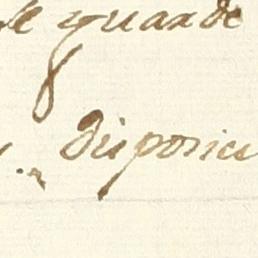 se guarde
disposici